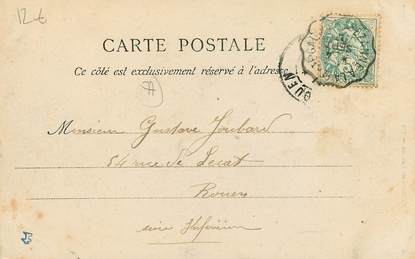 12€
CARTE POSTALE
Ce côté est exclusivement réservé à l'adresse
Monsieur Gustave Joubard
54 rue de Lecat
Rouen
Seine Inférieure